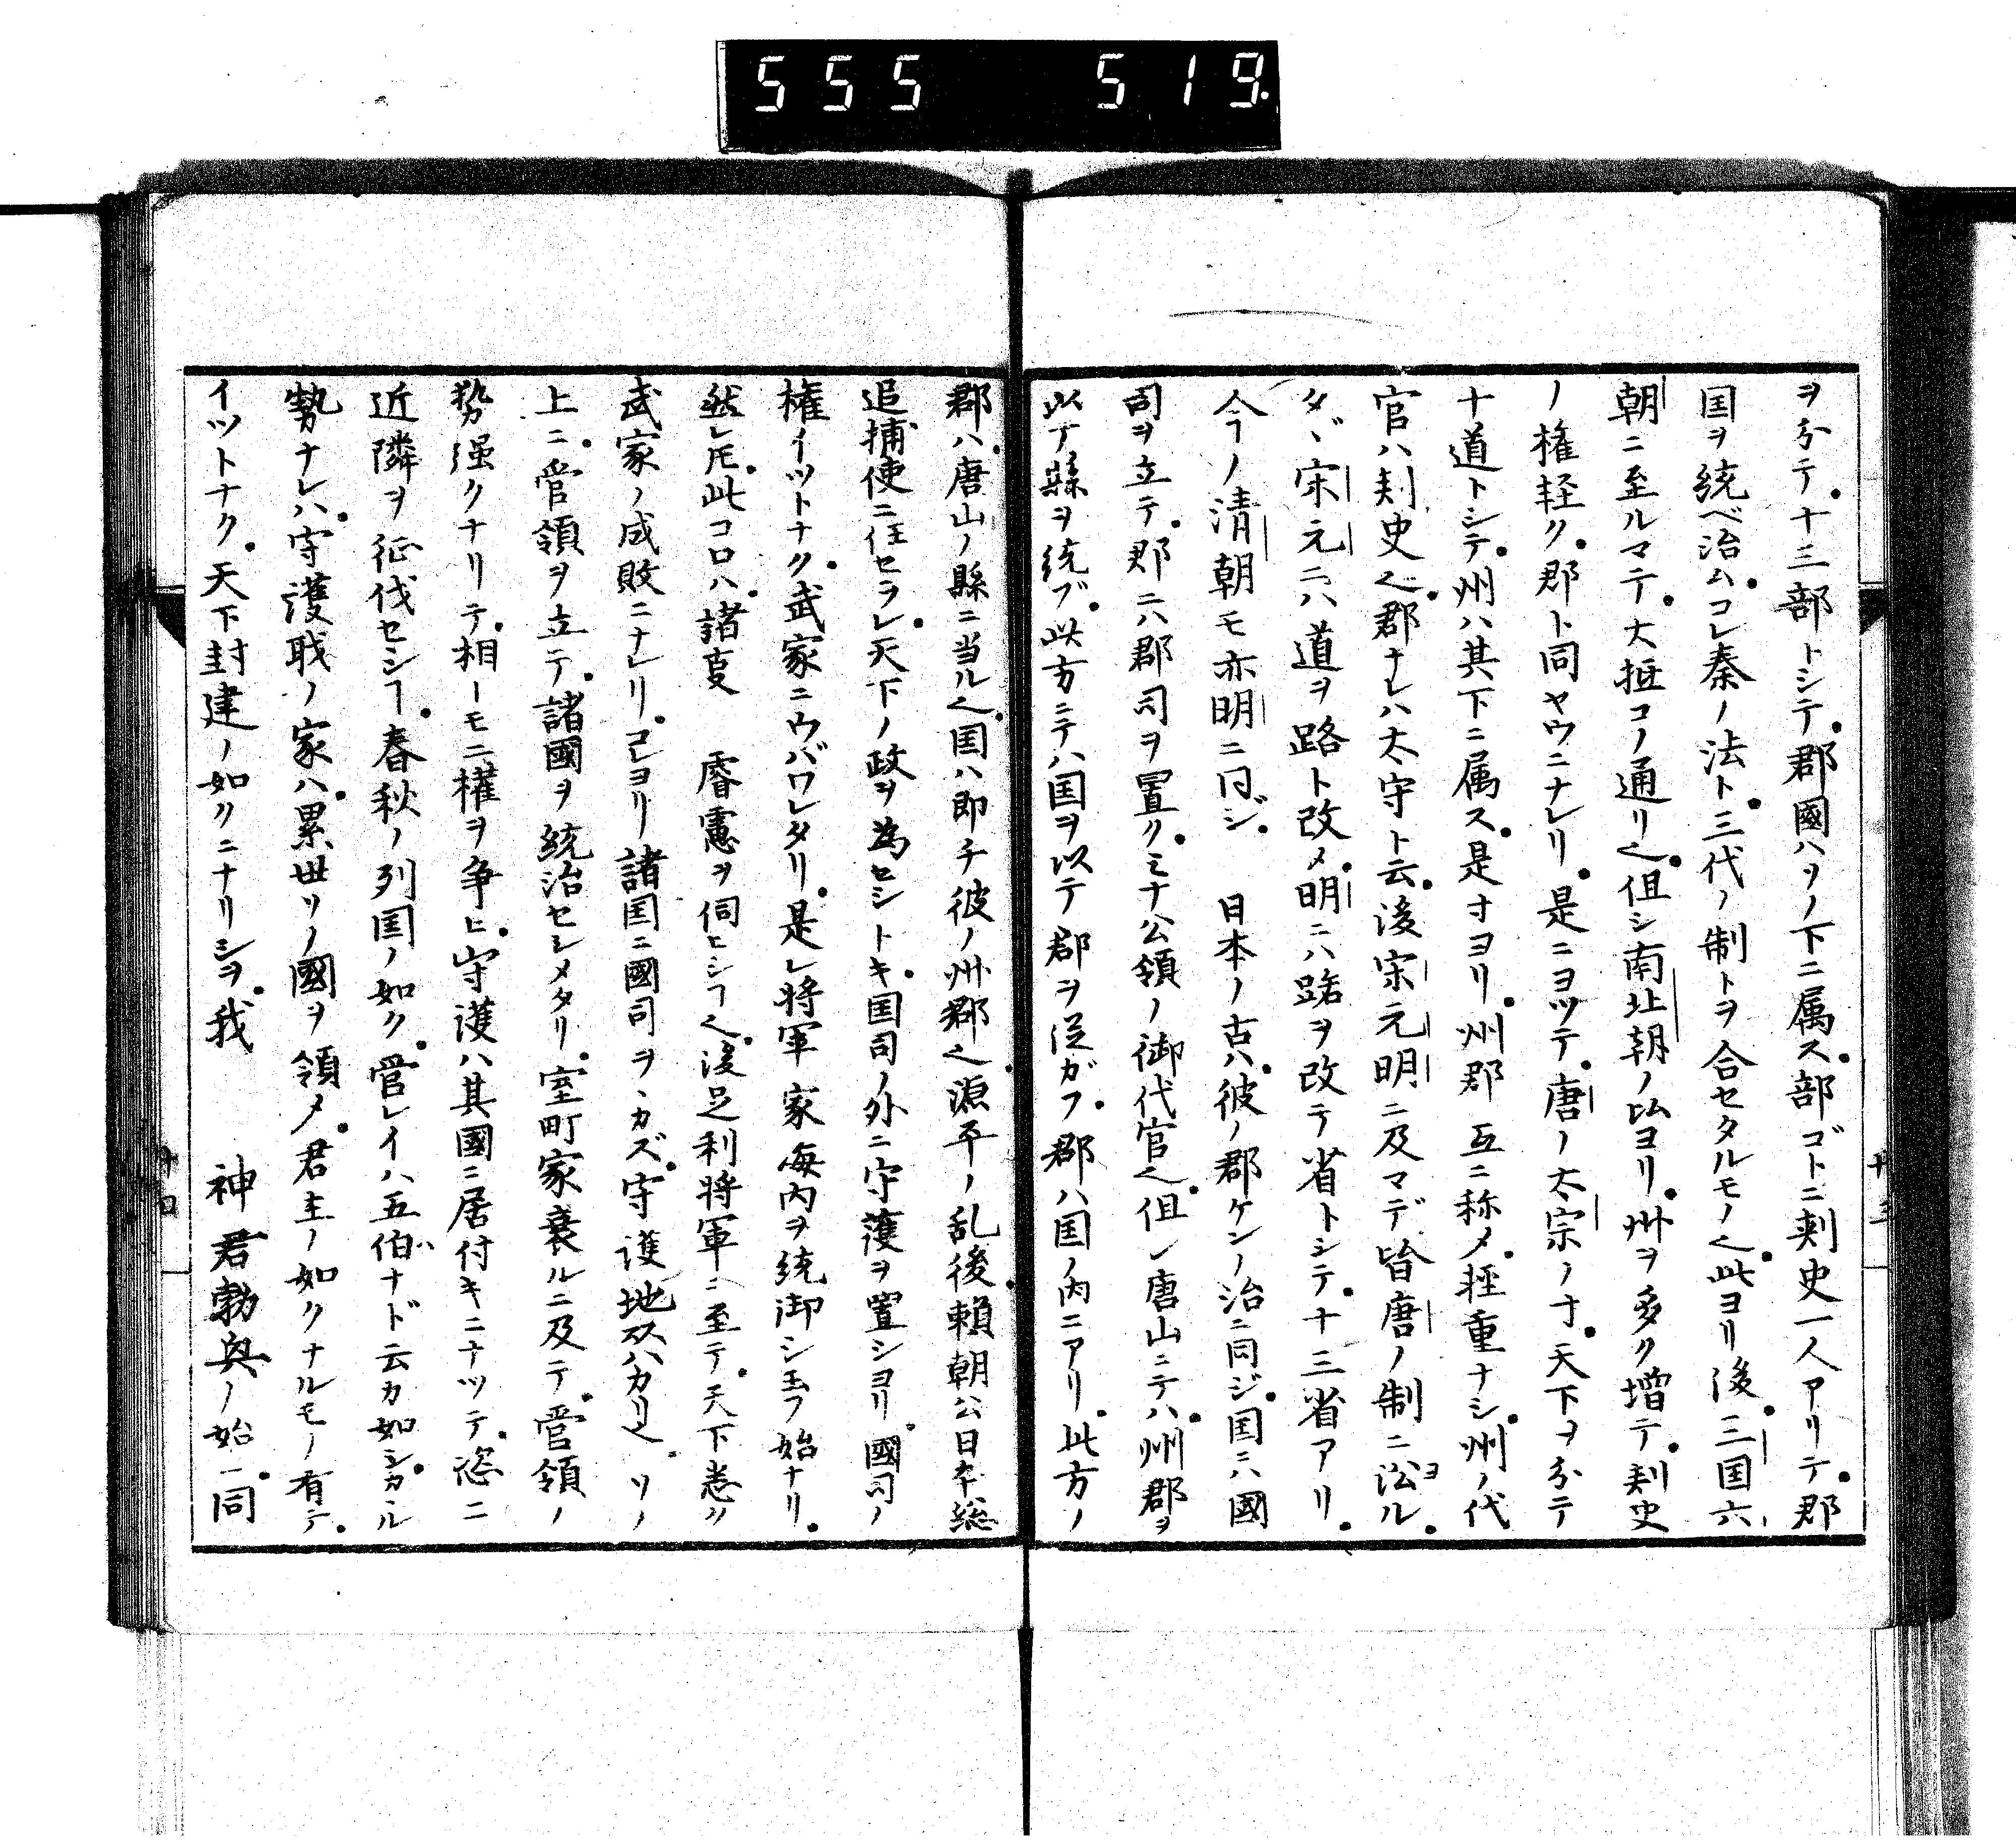 555 519.
ヲ分テ。十三部トシテ。郡國ハソノ下ニ属ス。部ゴトニ刺史一人アリテ。郡
国ヲ統ベ治ム。コレ秦ノ法ト。三代ノ制トヲ合セタルモノ也。此ヨリ後。三国六
朝ニ至ルマテ。大抵コノ通リ也。但シ南北朝ノ比ヨリ。州ヲ多ク増テ。刺史
ノ権軽ク。郡ト同ヤウニナレリ。是ニヨツテ。唐ノ太宗ノ寸。天下ヲ分テ
十道トシテ。州ハ其下ニ属ス。是寸ヨリ。州郡互ニ称メ。軽重ナシ。州ノ代
官ハ刺史也。郡ナレハ太守ト云。後宋元明ニ及マデ皆唐ノ制ニ沿ル。
タヾ宋元ニハ道ヲ路ト改メ。明ニハ路ヲ改テ省トシテ。十三省アリ。
今ノ清朝モ亦明ニ同ジ。 日本ノ古ハ。彼ノ郡ケンノ治ニ同ジ。国ニハ國
司ヲ立テ。郡ニハ郡司ヲ置ク。ミナ公領ノ御代官也。但シ唐山ニテハ。州郡ヲ
以テ縣ヲ統ブ。此方ニテハ国ヲ以テ郡ヲ従ガフ。郡ハ国ノ内ニアリ。此方ノ
十三
郡ハ。唐山ノ縣ニ当ル也。国ハ即チ彼ノ州郡也。源平ノ乱後。頼朝公日本総
追捕使ニ任セラレ。天下ノ政ヲ為セシトキ。国司ノ外ニ守護ヲ置シヨリ。國司ノ
権イツトナク。武家ニウバワレタリ。是レ将軍家海内ヲ統御シ玉フ始ナリ。
然レ𪜈。此コロハ。諸叓 睿慮ヲ伺ヒシヿ也。後足利将軍ニ至テ。天下悉ク
武家ノ成敗ニナレリ。コレヨリ諸国ニ國司ヲヽカズ。守護地頭ハカリ也。ソノ
上ニ。管領ヲ立テ。諸國ヲ統治セシメタリ。室町家衰ルニ及テ。管領ノ
勢强クナリテ。相トモニ權ヲ争ヒ。守護ハ其國ニ居付キニナツテ。恣ニ
近隣ヲ征伐セシヿ。春秋ノ列国ノ如ク。管レイハ五伯ナド云カ如シ。カヽル
勢ナレハ。守護職ノ家ハ。累世ソノ國ヲ領メ。君主ノ如クナルモノ有テ。
イツトナク。天下封建ノ如クニナリシヲ。我 神君勃興ノ始。一同
十四